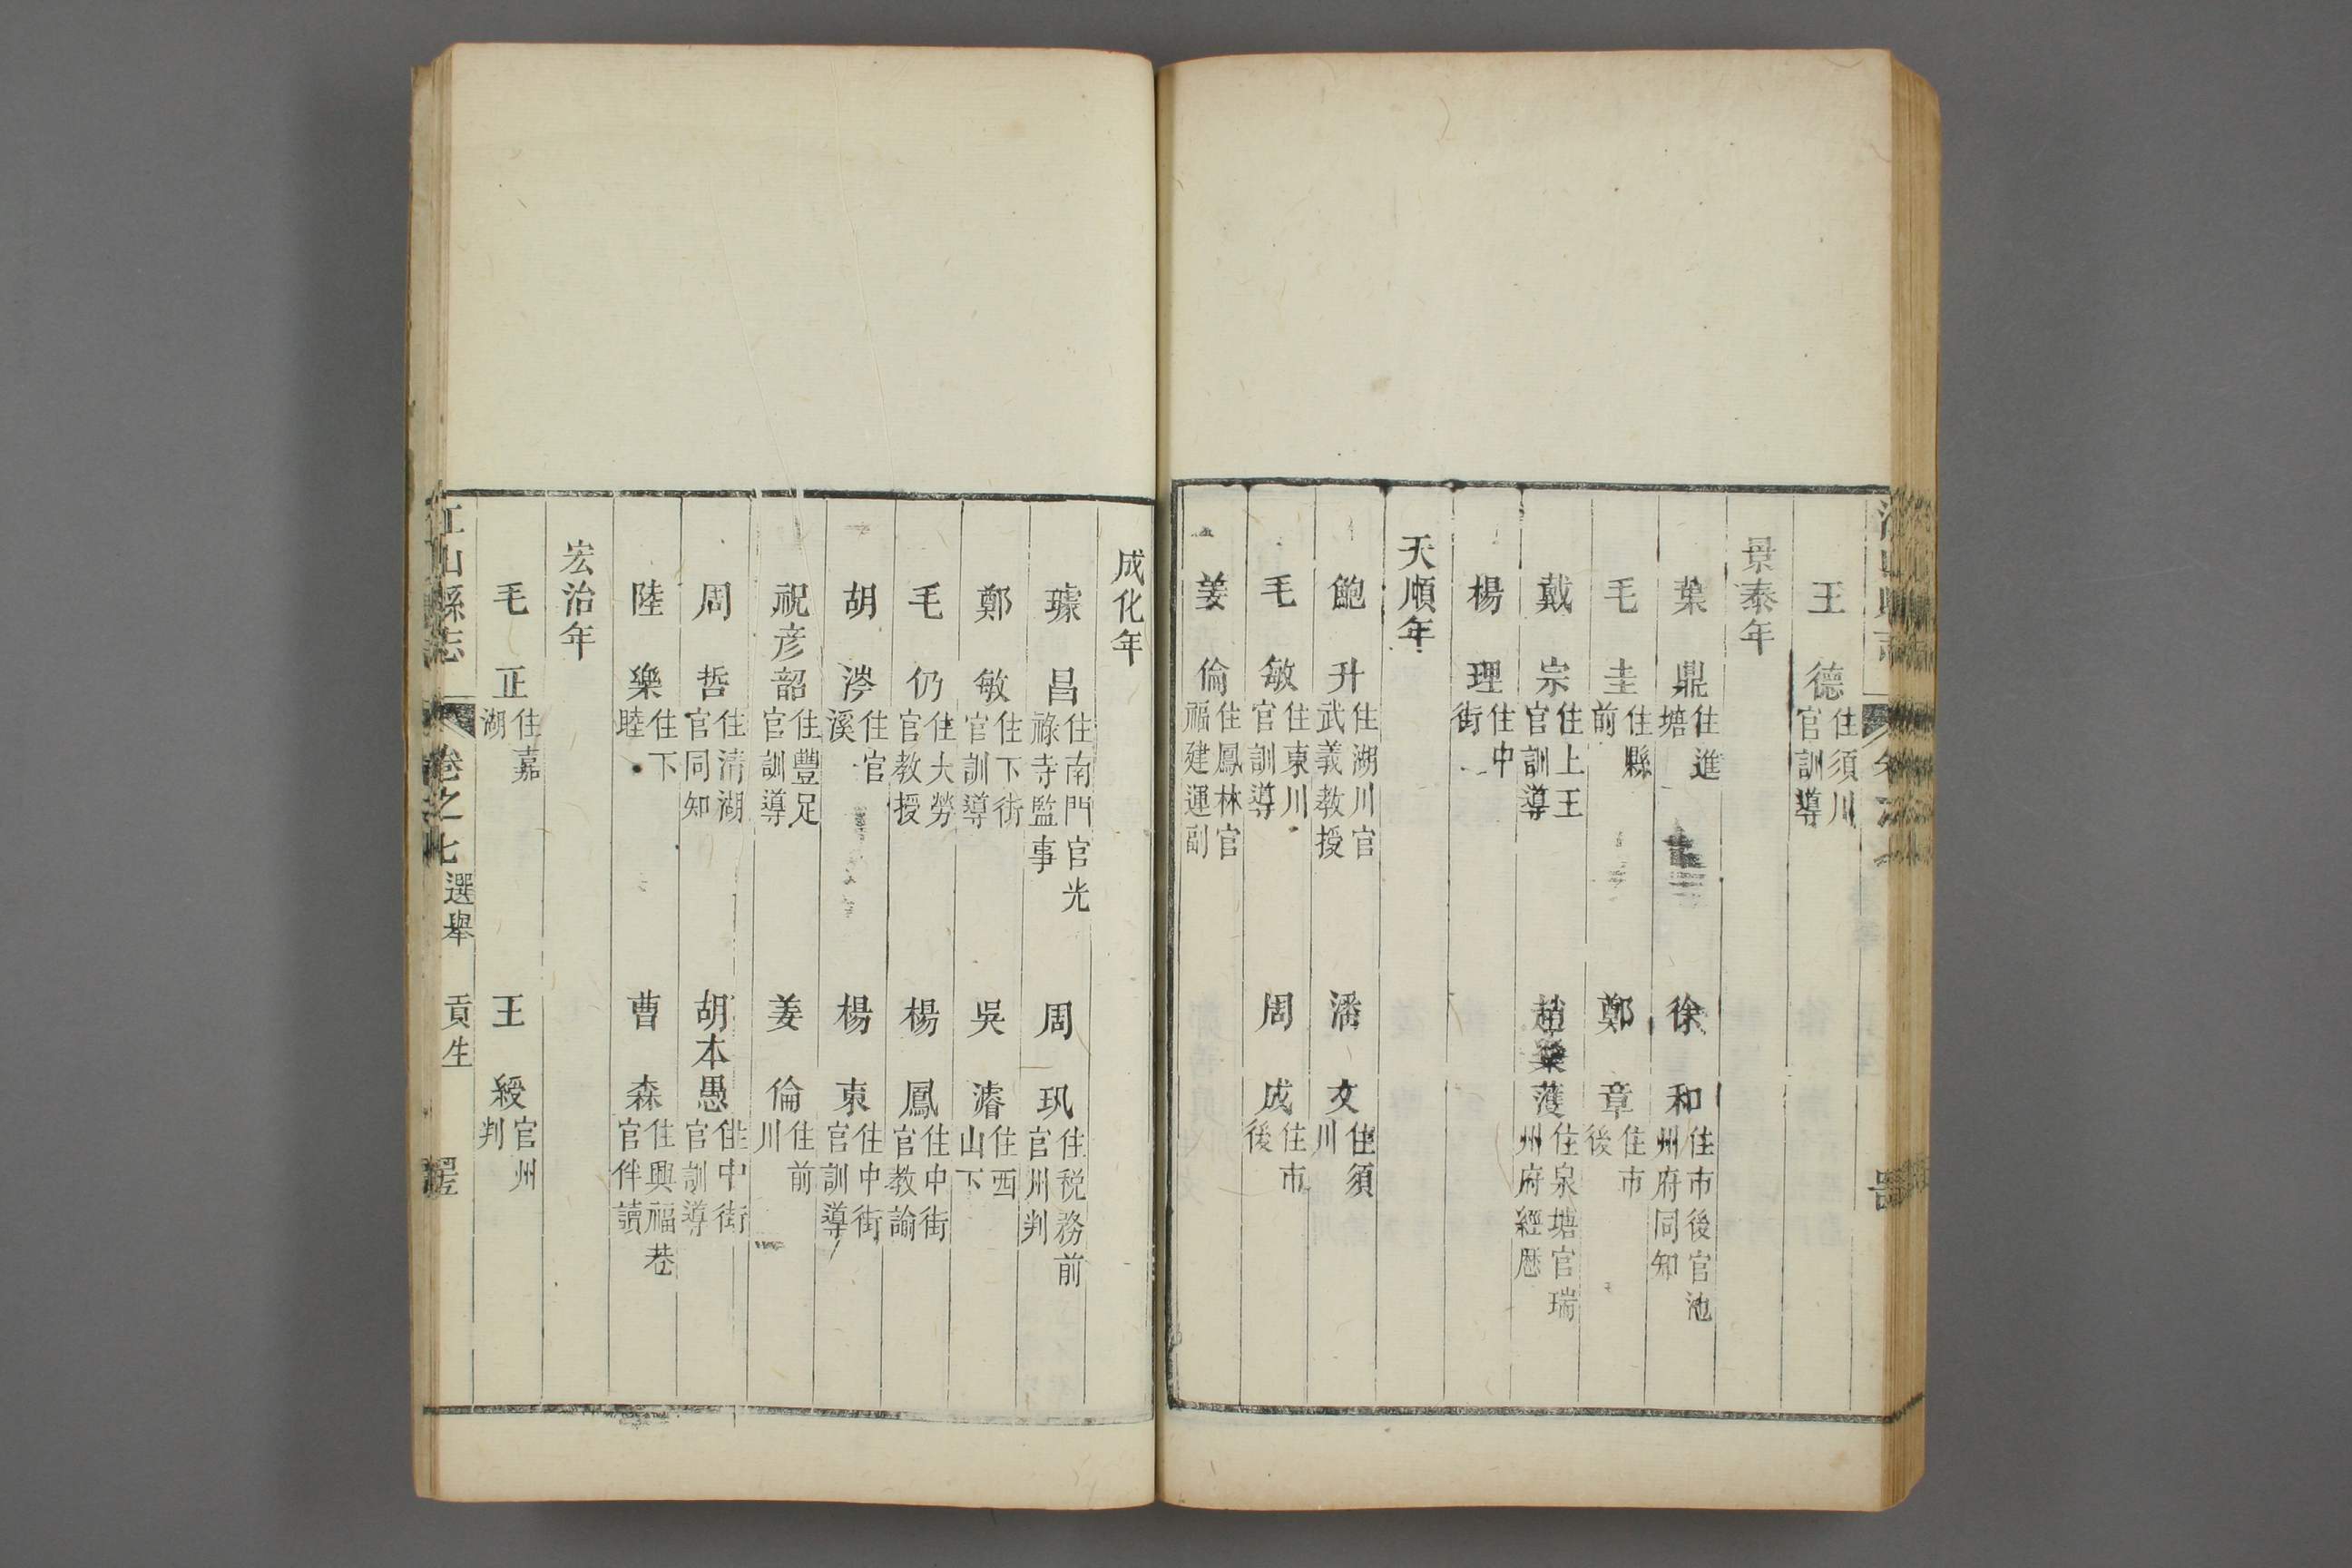 王　德 住須川官訓導
景泰年
葉　鼎 住進塘
徐　和 住市後官池州府同知
毛　圭 住縣前
鄭　章 住市後
戴　宗 住上王官訓導
趙　濩 住泉塘官瑞州府經歷
楊　理 住中街
天順年
鮑　升 住湖川官武義教授
潘　文 住須川
毛　敏 住東川官訓導
周　成 住市後
姜　倫 住鳳林官福建運副
成化年
璩　昌 住南門官光祿寺監事
周　玑 住稅務前官州判
鄭　敏 住下街官訓導
吳　濬 住西山下
毛　仍 住大勞官教授
楊　鳳 住中街官教諭
胡　涔 住官溪
楊　東 住中街官訓導
祝彥韶 住豐足官訓導
姜　倫 住前川
周　哲 住清湖官同知
胡本愚 住中街官訓導
陸　樂 住下睦
曹　森 住興福巷官伴讀
宏治年
毛　正 住嘉湖
王　綬 官州判
江山縣志　卷之七　選舉　貢生